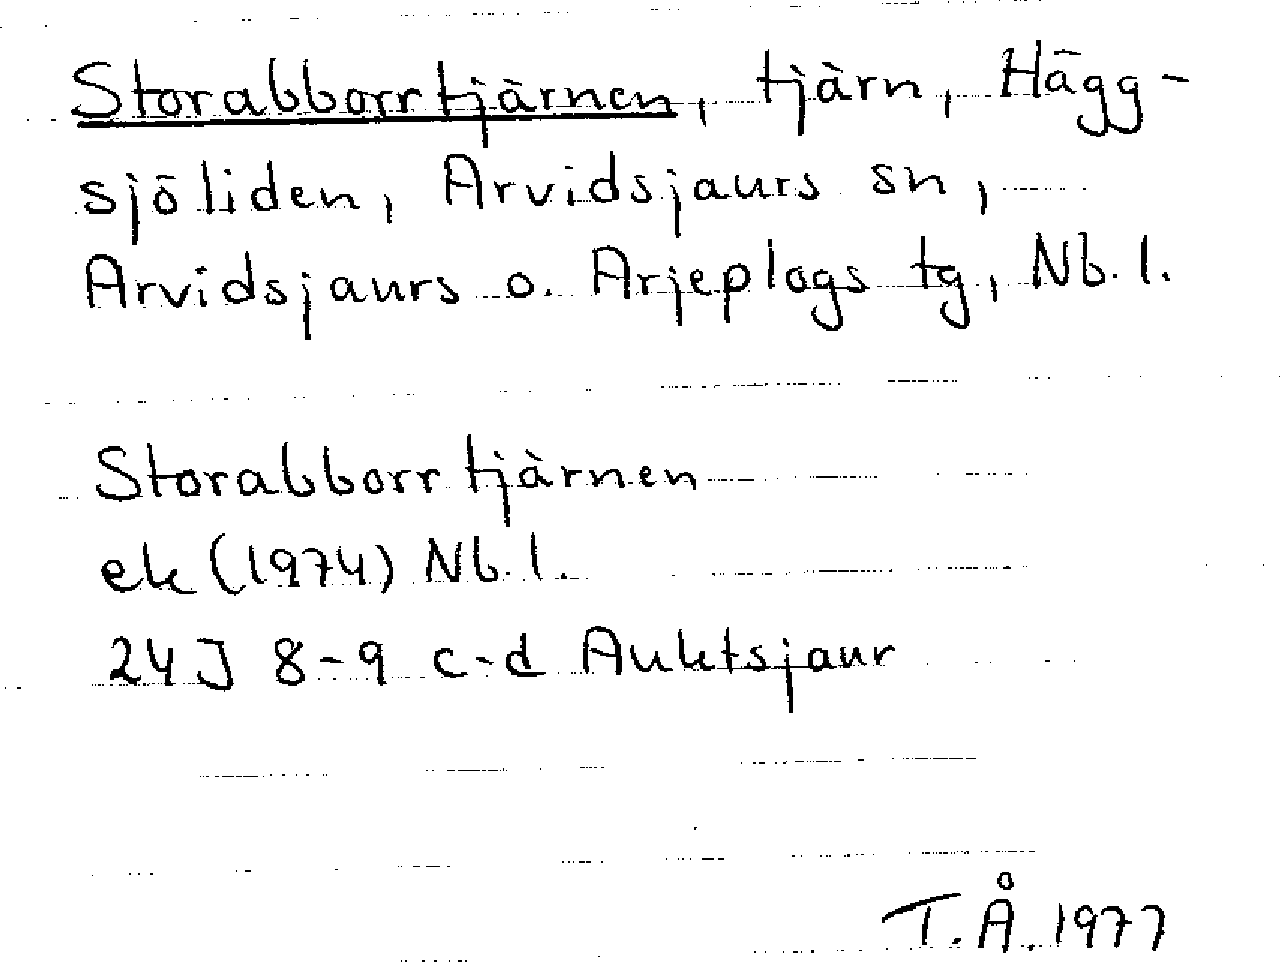 Storabborrtjärnen, tjärn, Hägg-
sjöliden, Arvidsjaurs sn,
Arvidsjaurs o. Arjeplogs tg, Nb. l.
Storabborrtjärnen
ek (1974) Nb. l.
24J 8-9 c-d Auktsjaur
T.Å. 1977